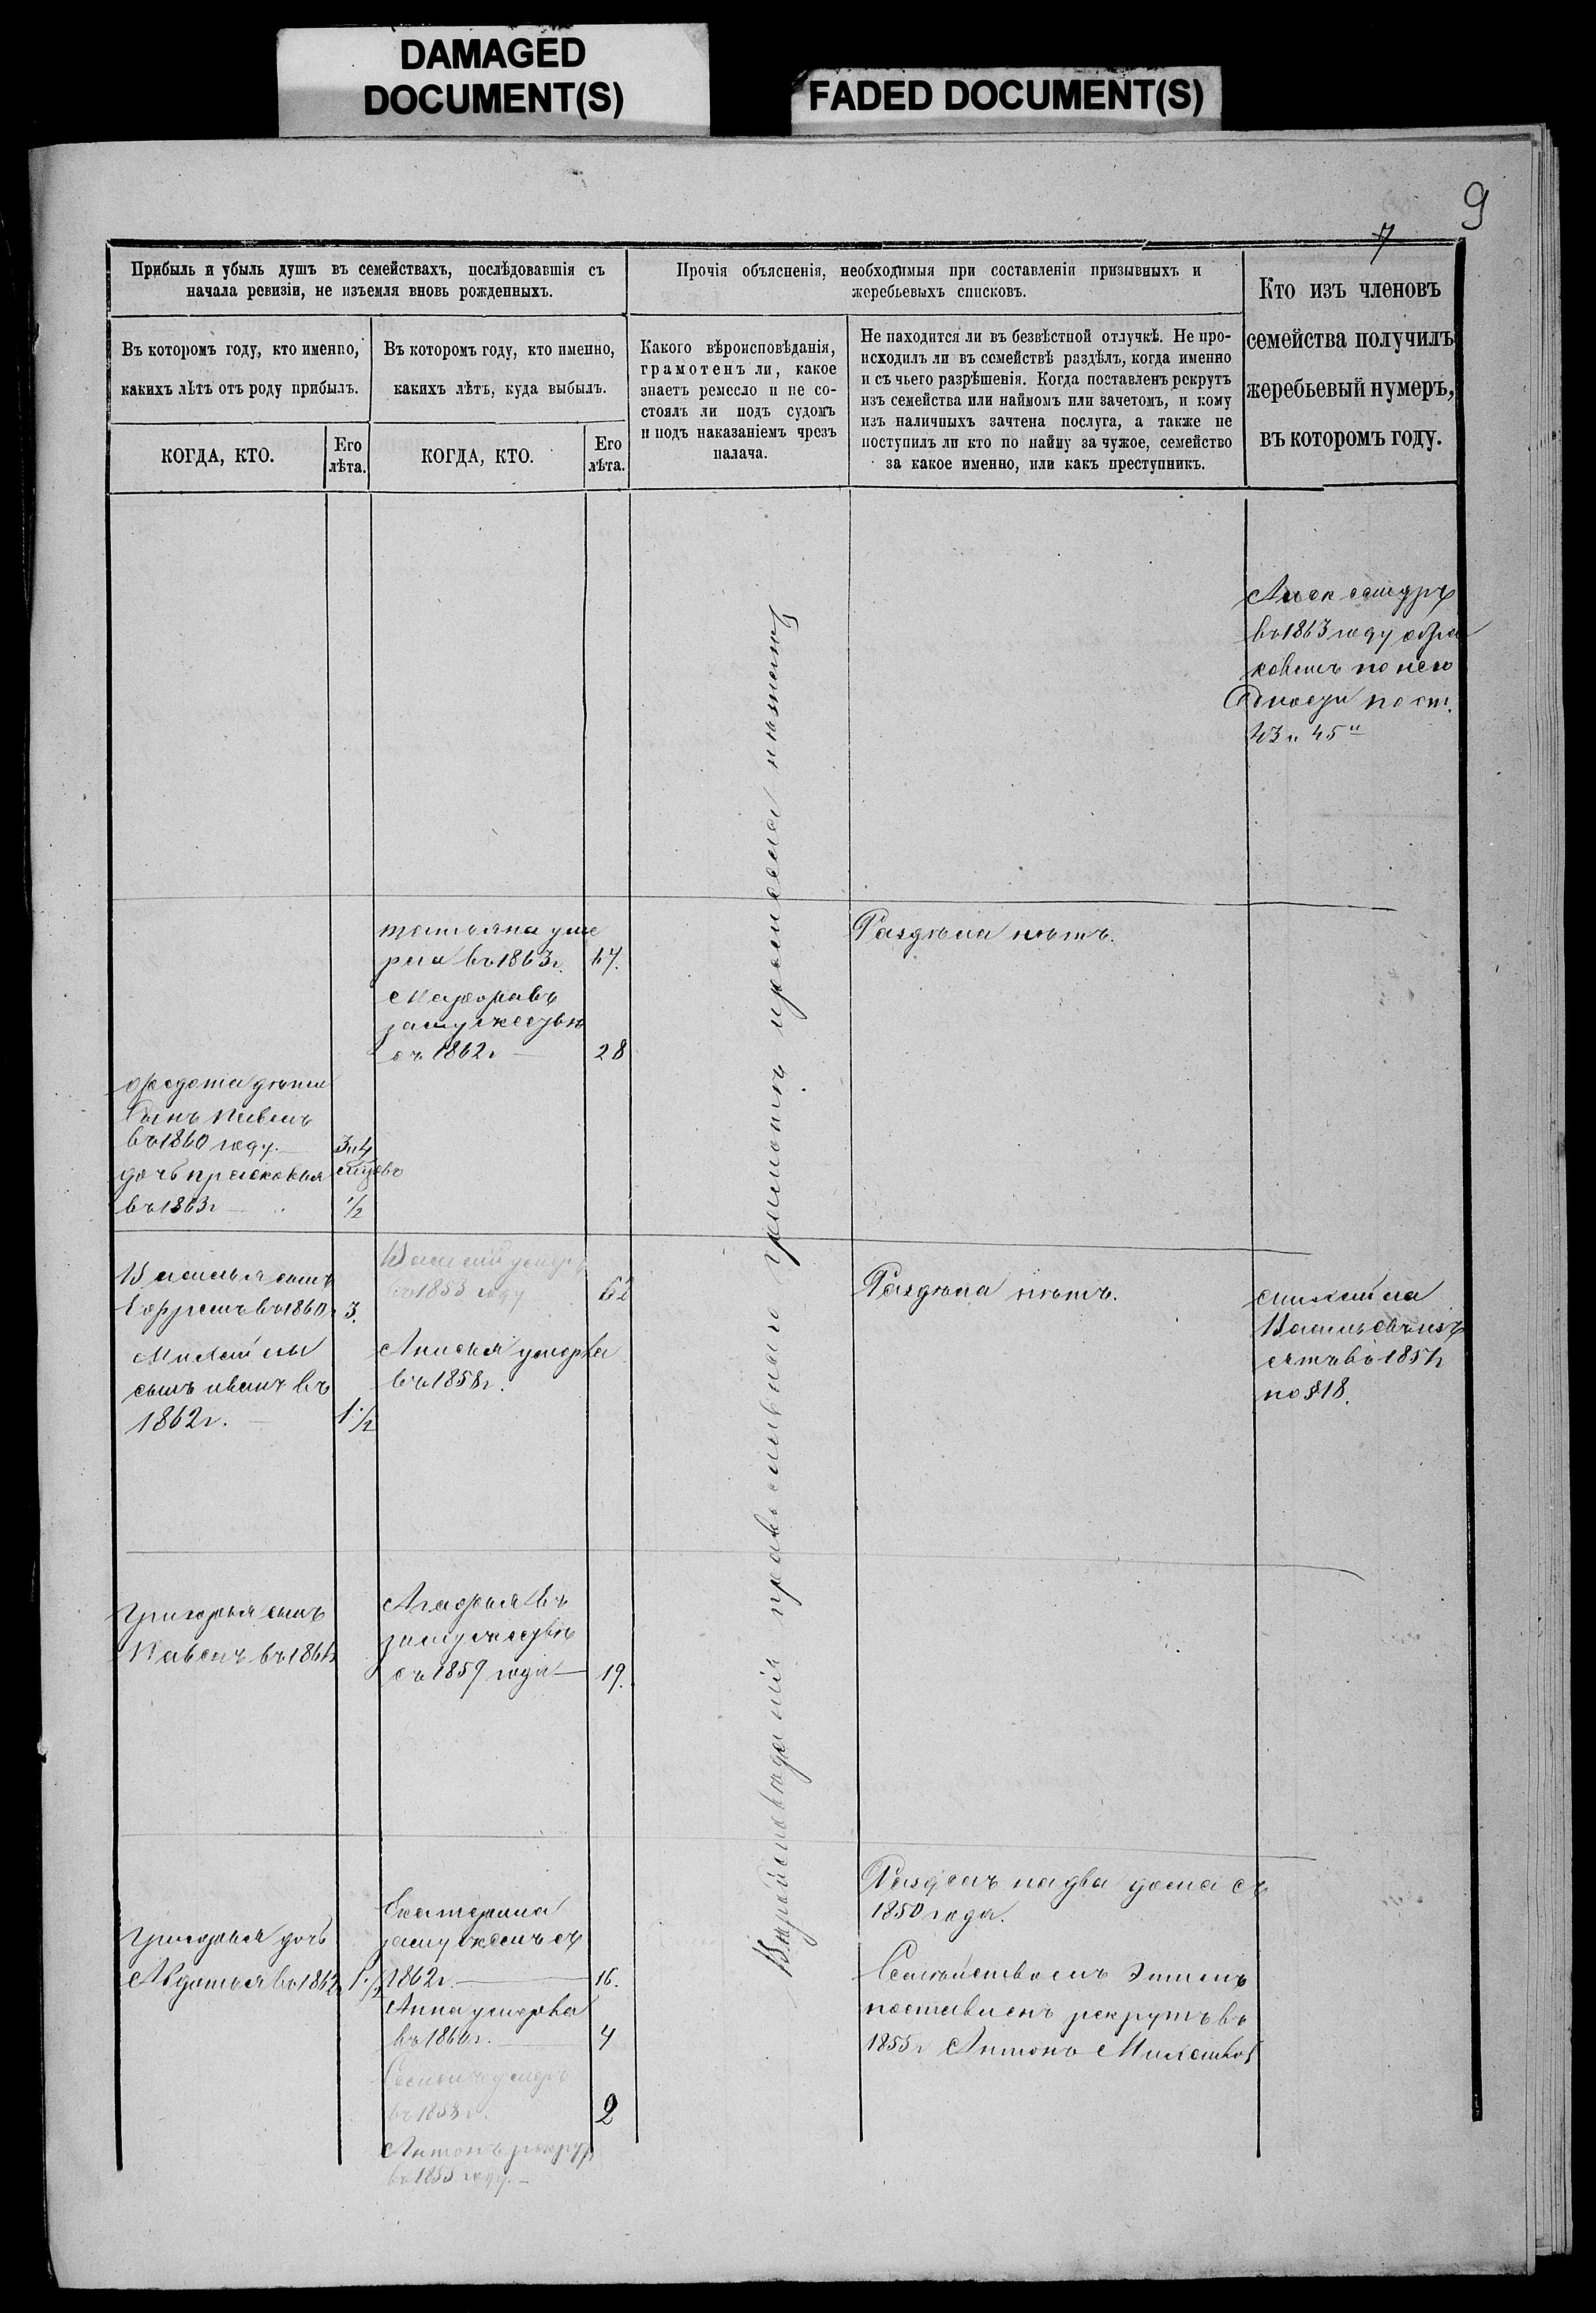 DAMAGED
DOCUMENT(S)
FADED DOCUMENT(S)
9
7
Прибыль и убыль душъ въ семействахъ, послѣдовавшія съ
начала ревизіи, не изъемля вновь рожденныхъ.
Въ которомъ году, кто именно,
какихъ лѣтъ отъ роду прибылъ.
КОГДА, КТО.
Его
лѣта.
Въ которомъ году, кто именно,
какихъ лѣтъ, куда выбылъ.
КОГДА, КТО.
Его
лѣта.
Прочія объясненія, необходимыя при составленіи призывныхъ и
жеребьевыхъ списковъ.
Какого вѣроисповѣданія,
грамотенъ ли, какое
знаетъ ремесло и не со-
стоялъ ли подъ судомъ
и подъ наказаніемъ чрезъ
палача.
Не находится ли въ безвѣстной отлучкѣ. Не про-
исходилъ ли въ семействѣ раздѣлъ, когда именно
и съ чьего разрѣшенія. Когда поставленъ рекрутъ
изъ семейства или наймомъ или зачетомъ, и кому
изъ наличныхъ зачтена послуга, а также не
поступилъ ли кто по найму за чужое, семейство
за какое именно, или какъ преступникъ.
Кто изъ членовъ
семейства получилъ
жеребьевый нумеръ,
въ которомъ году.
въ 1863 году обра
кованъ по него
дности по ст.
43 и 45й
Татьяна уме
рла въ 1863 г. 67.
замужествѣ
съ 1862 г — 28
Раздѣла нѣтъ.
Федота дѣти
Сынъ Павелъ
въ 1860 году. — 3 и 4
дочь Прасковья
въ 1863 г — 1/2
Василья сынъ
Ефремъ въ 1860 г 3.
Михайлы
сынъ Иванъ въ
1862 г. — 1 1/2
Василій умеръ
въ 1853 году 62
Анисья умерла
въ 1858 г.
Раздѣла нѣтъ.
Михайла
Васильевъ изъ
ятъ въ 1854 г
по § 18.
Григорья сынъ
Павелъ въ 1861 г
Агафья въ
замужествѣ
съ 1859 года — 19.
Григорья дочь
Авдотья въ 1862 г 1 1/2
Екатерина
замужемъ съ
1862 г. — 16.
Анна умерла
въ 1860 г. — 4
въ 1858 г. 2
Антонъ рекрут
въ 1855 году. —
Вѣроисповѣданія православнаго грамотѣ ремесла не знаютъ
Раздѣлъ на два дома съ
1850 года.
Семѣйствомъ этимъ
поставленъ рекрутъ въ
1855 г Антонъ Михайлов